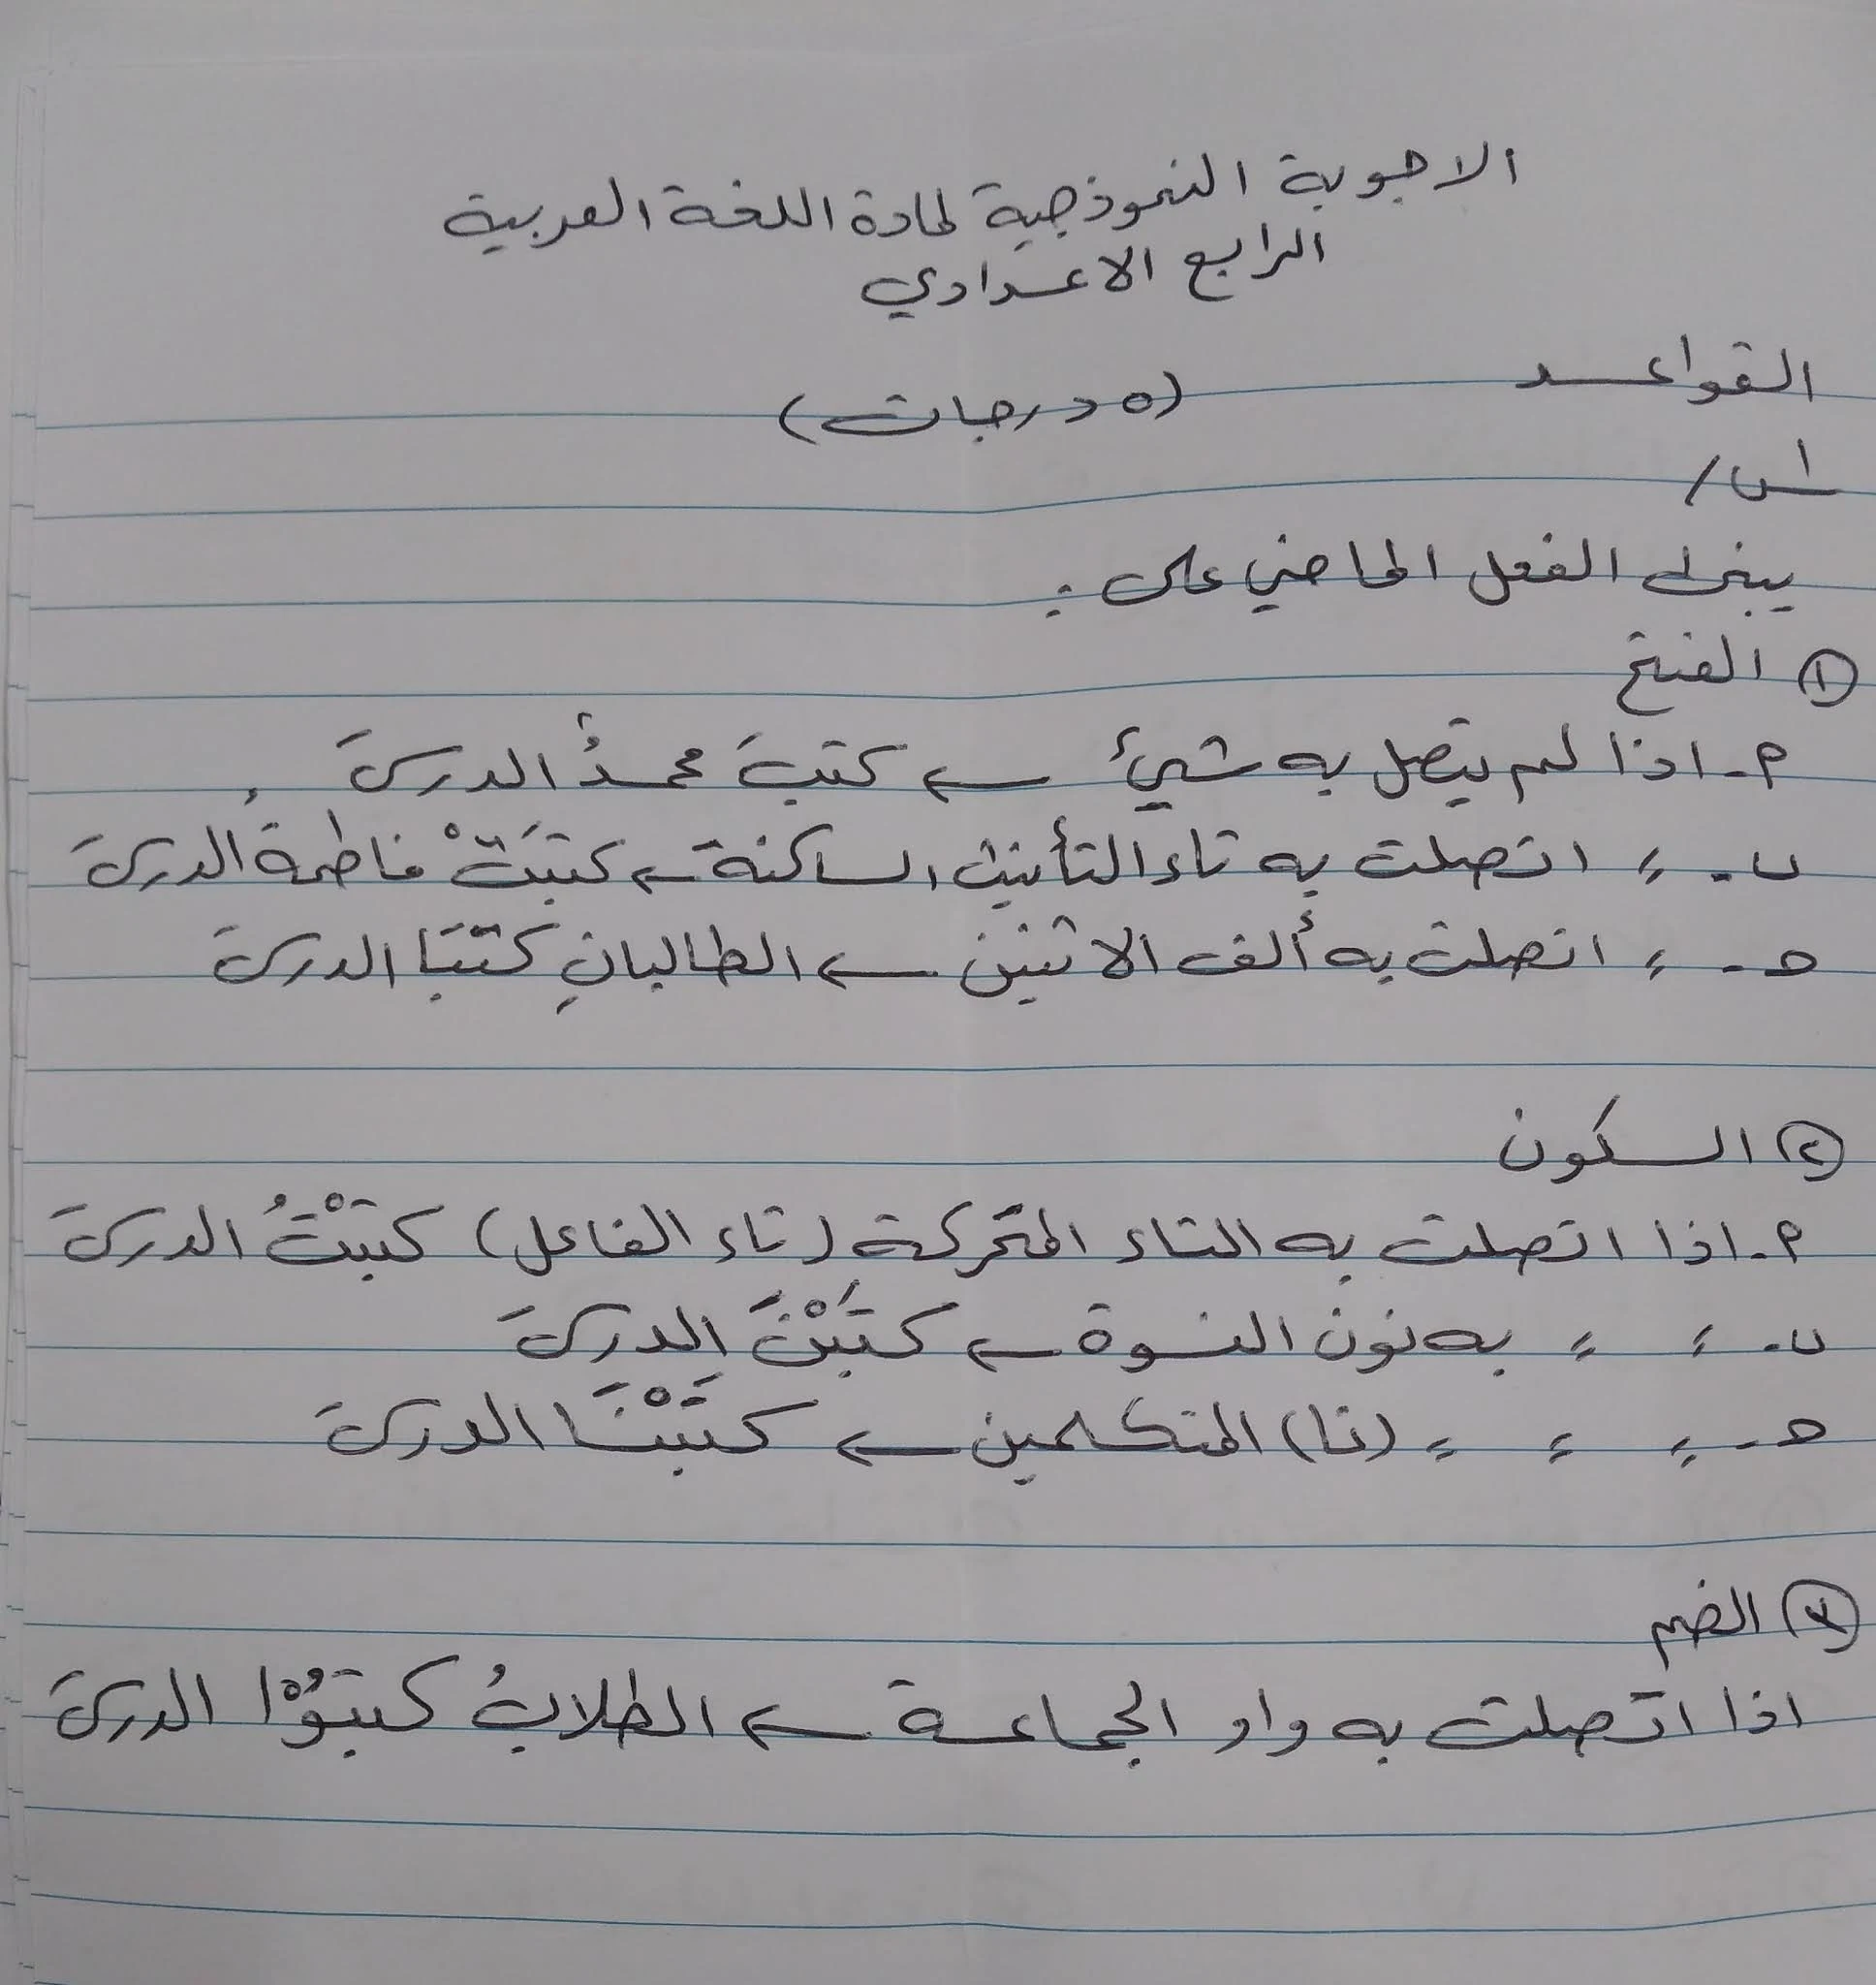 الاجوبة النموذجية لمادة اللغة العربية
الرابع الاعدادي
القواعد (٥ درجات)
س١/
يبنى الفعل الماضي على :
① الفتح
م- اذا لم يتصل به شيئ ← كتبَ محمدُ الدرسَ
ب- ؞ اتصلت به تاء التأنيث الساكنة ← كتبَتْ فاطمةُ الدرسَ
حـ- ؞ اتصلت به ألف الاثنين ← الطالبانِ كَتَبَا الدرسَ
② السكون
م- اذا اتصلت به التاء المتحركة (تاء الفاعل) كتبْتُ الدرسَ
ب- ؞ ؞ به نون النسوة ← كتَبْنَ الدرسَ
حـ- ؞ ؞ ؞ (نا) المتكلمين ← كتَبْنَا الدرسَ
③ الضم
اذا اتصلت به واو الجماعة ← الطلابُ كتبُوْا الدرسَ